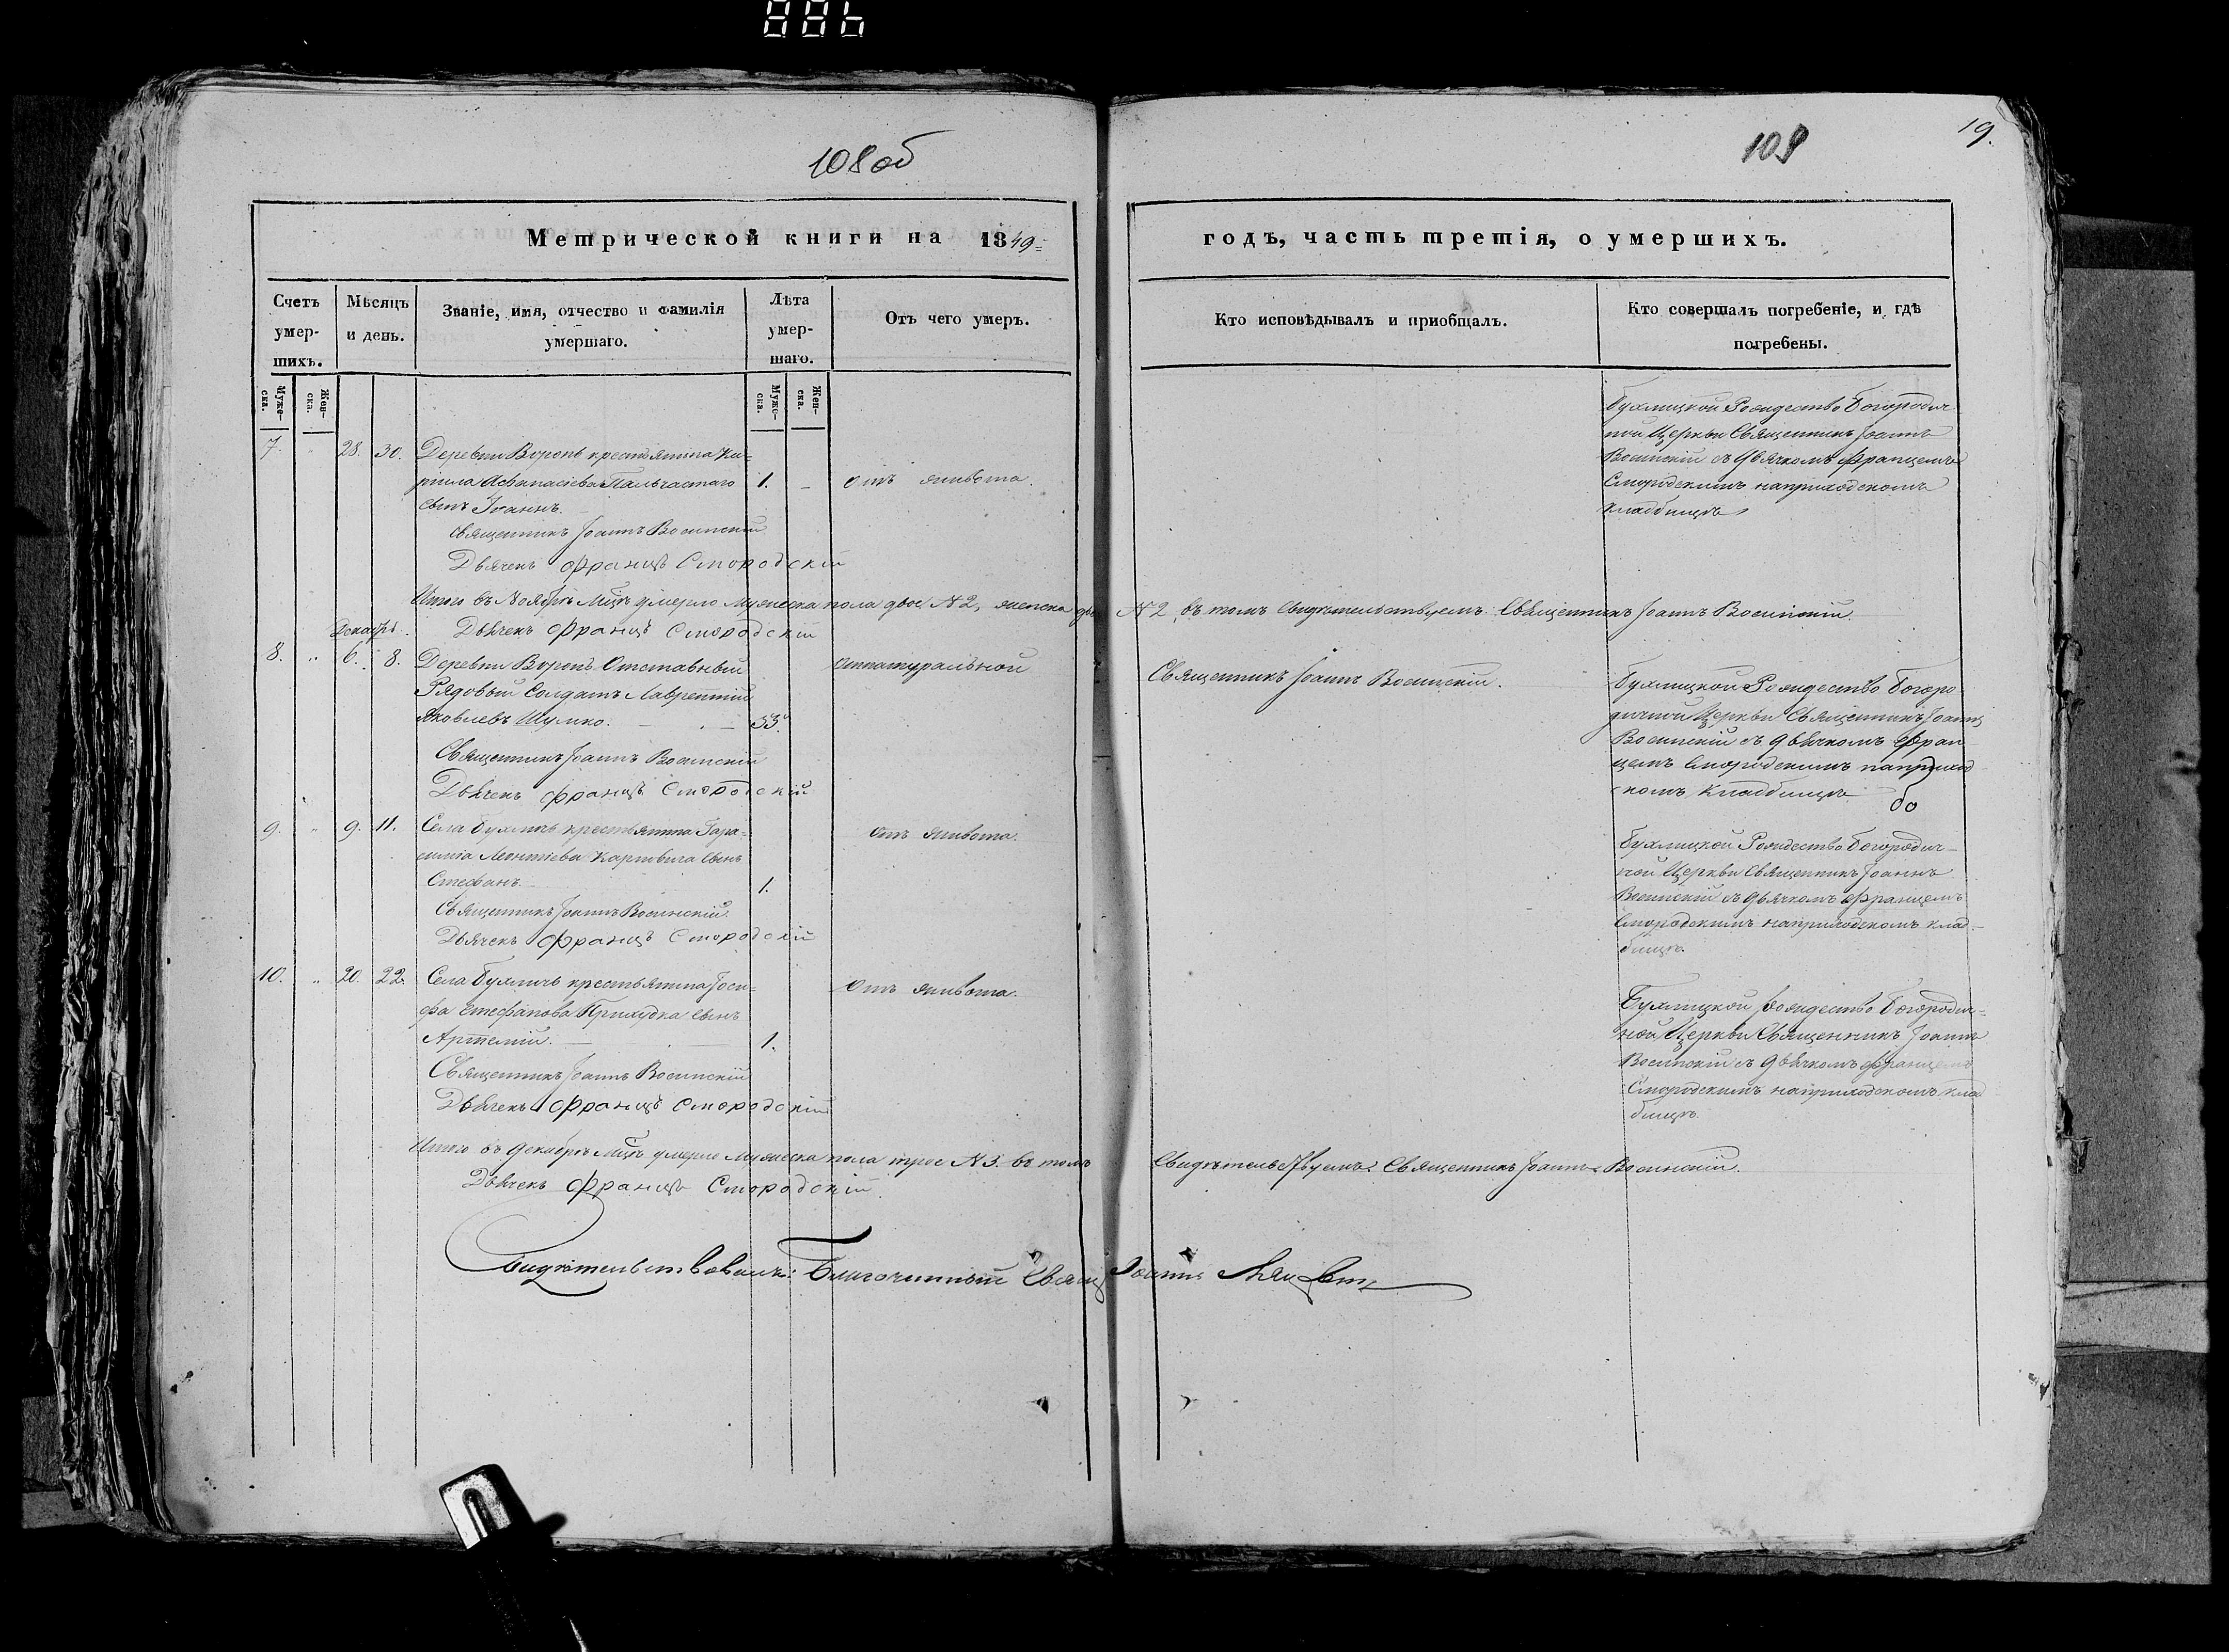 108 об
109
19.
Метрической книги на 1849=
годъ, часть третія, о умершихъ.
Счетъ умер-шихъ.
Мѣсяцъ и день.
Званіе, имя, отчество и фамилія умершаго.
Лѣта умер-шаго.
Отъ чего умеръ.
Кто исповѣдывалъ и пріобщалъ.
Кто совершалъ погребеніе, и гдѣ погребены.
Муже-ска.
Жен-ска.
Муже-ска.
Жен-ска.
7. " 28. 30. Деревни Воронь крестьянина Ки-
рила Афанасіева Пальчастаго 1. – отъ живота.
сынъ Іоаннъ.
Священникъ Іоаннъ Восинскій
Дьячекъ Францъ Смородскій
Бухлицкой Рождество Богородич-
ной Церкви Священникъ Іоаннъ
Восинскій съ дьячкомъ Францемъ
Смородскимъ на приходскомъ
кладбищѣ
Итого въ Ноябрѣ М-цѣ умерло мужеска пола двое № 2, женска двѣ № 2, въ томъ свидѣтельствуемъ Священникъ Іоаннъ Восинскій.
Дьячекъ Францъ Смородскій
Декабрь.
8. " 6. 8. Деревни Воронь Отставный
Рядовый Солдатъ Лаврентій
Яковлевъ Шумко. – 53.
Священникъ Іоаннъ Восинскій
Дьячекъ Францъ Смородскій
Священникъ Іоаннъ Восинскій.
Бухлицкой Рождество Богоро-
дичной Церкви Священникъ Іоаннъ
Восинскій съ дьячкомъ Фран-
цемъ Смородскимъ на приход-
скомъ кладбищѣ
9. " 9. 11. Села Бухличъ крестьянина Гара-
сима Леонтіева Карповича сынъ
Стефанъ – 1. отъ живота.
Священникъ Іоаннъ Восинскій.
Дьячекъ Францъ Смородскій
Бухлицкой Рождество Богородич-
ной Церкви Священникъ Іоаннъ
Восинскій съ дьячкомъ Францемъ
Смородскимъ на приходскомъ клад-
бищѣ.
10. " 20. 22. Села Бухличъ крестьянина Іоси-
фа Стефанова сынъ
Артемій. – 1. отъ живота.
Священникъ Іоаннъ Восинскій
Дьячекъ Францъ Смородскій
Бухлицкой Рождество Богородич-
ной Церкви Священникъ Іоаннъ
Восинскій съ дьячкомъ Францемъ
Смородскимъ на приходскомъ клад-
бищѣ.
Итого въ Декабрѣ М-цѣ умерло мужеска пола трое № 3. въ томъ свидѣтельствуемъ Священникъ Іоаннъ Восинскій.
Дьячекъ Францъ Смородскій.
Свидѣтельствовалъ: Благочинный Свящ. Іоаннъ